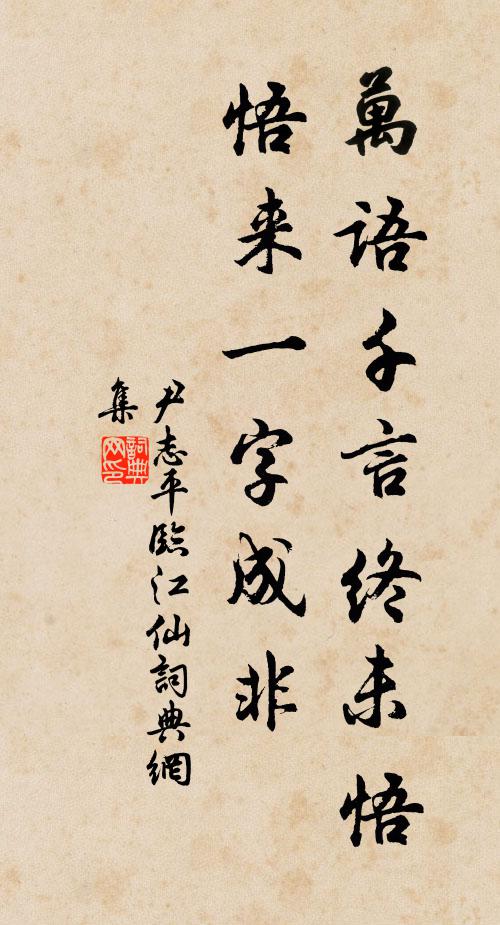 萬語千言終未悟
悟来一字成非
尹志平臨江仙詞典網
集
詞典
网印